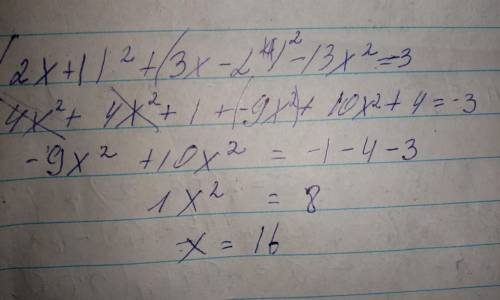 (2x+1)² + (3x-2)² - 13x² = 3
4x² + 4x² + 1 + (-9x²) + 10x² + 4 = -3
-9x² + 10x² = -1 - 4 - 3
1x² = 8
x = 16